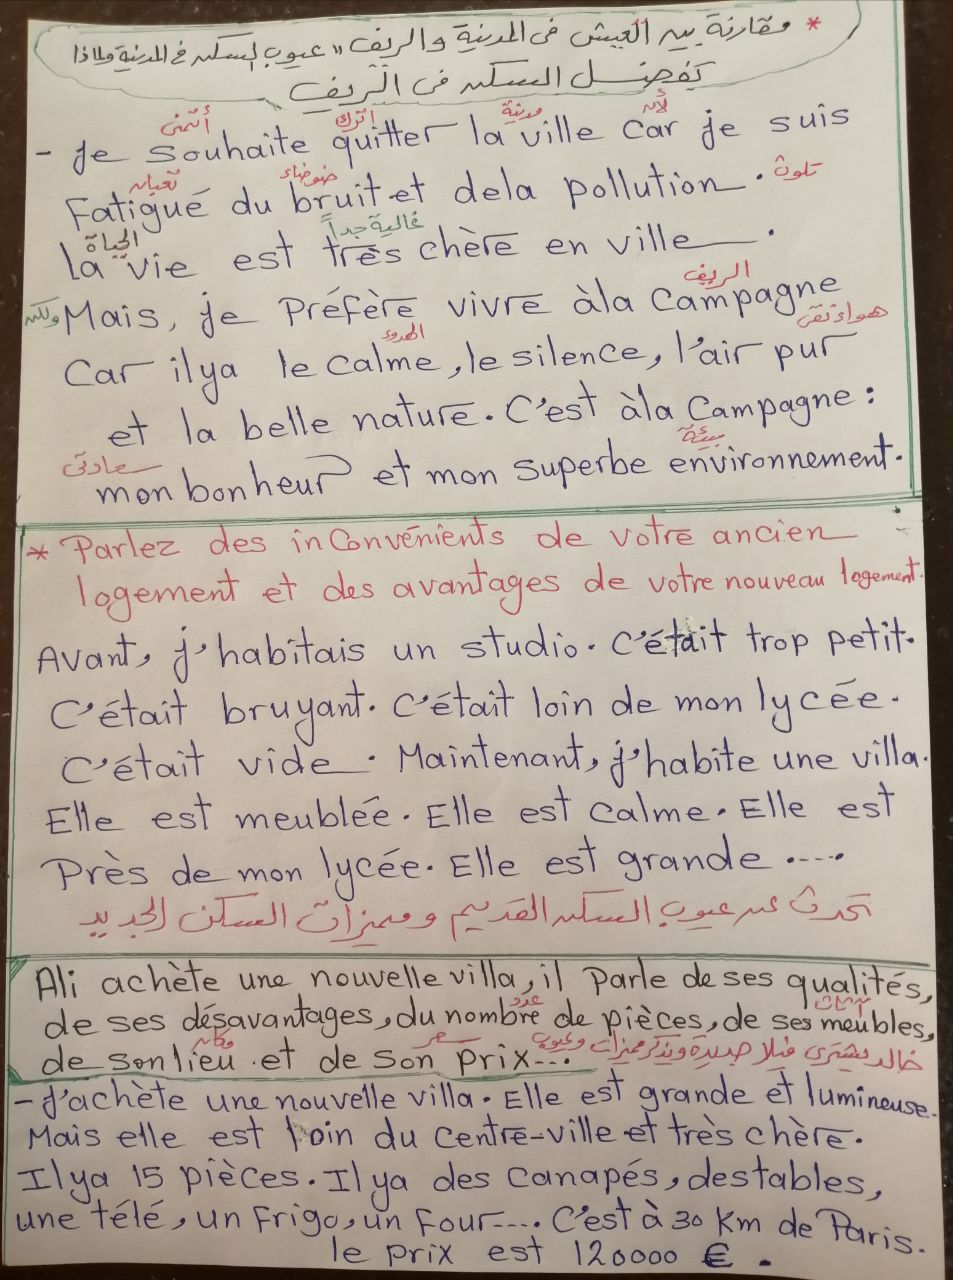 * مقارنة بين العيش فى المدينة والريف " عيوب السكن فى المدينة ولماذا
تفضل السكن فى الريف
أتمنى أترك مدينة لأن
- Je souhaite quitter la ville car je suis
تعبان ضوضاء تلوث
Fatigué du bruit et dela pollution.
الحياة غالية جداً
la vie est très chère en ville.
ولكن الريف
Mais, je Préfère vivre àla Campagne
الهدوء هواء نقى
Car ilya le Calme, le silence, l'air pur
et la belle nature. C'est àla Campagne :
سعادتى بيئة
mon bonheur et mon superbe environnement.
* Parlez des inConvénients de votre ancien
logement et des avantages de votre nouveau logement.
Avant, j'habitais un studio. C'était trop petit.
C'était bruyant. C'était loin de mon lycée.
C'était vide. Maintenant, j'habite une villa.
Elle est meublée. Elle est Calme. Elle est
Près de mon lycée. Elle est grande .....
تحدث عن عيوب السكن القديم ومميزات السكن الجديد
Ali achète une nouvelle villa, il Parle de ses qualités,
عدد أثاث
de ses désavantages, du nombre de pièces, de ses meubles,
مكان سعر
de son lieu et de son prix... خالد يشترى فيلا جديدة ويذكر مميزات وعيوب
- J'achète une nouvelle villa. Elle est grande et lumineuse.
Mais elle est loin du Centre-ville et très chère.
Ilya 15 pièces. Il ya des Canapés, destables,
une télé, un Frigo, un Four.... C'est à 30 Km de Paris.
le prix est 120000 €.